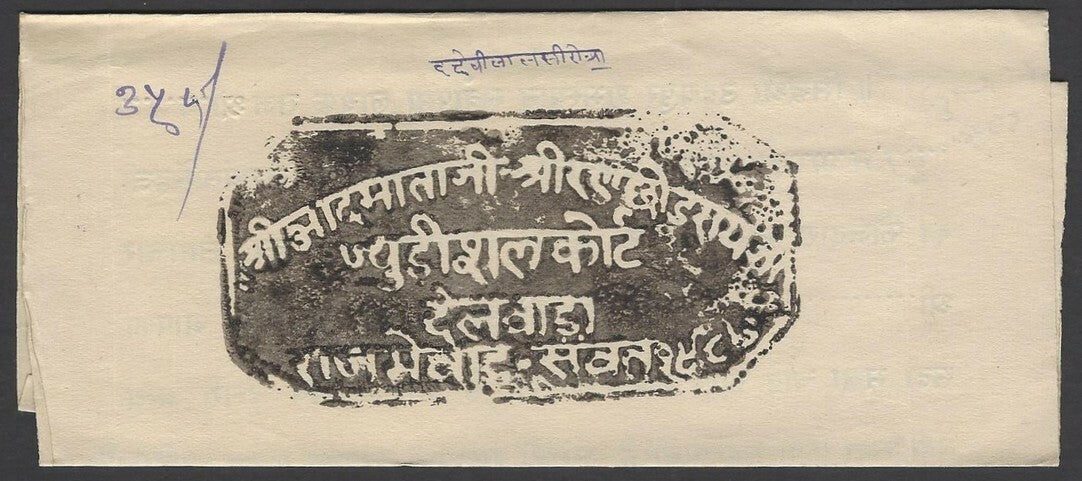 द देवीलालसीरोया
३५५/
श्रीआदमाताजी-श्रीरणछोड़रायजी
ज्युडीशल कोर्ट
देलवाड़ा
राजमेवाड़·संवत १९८७